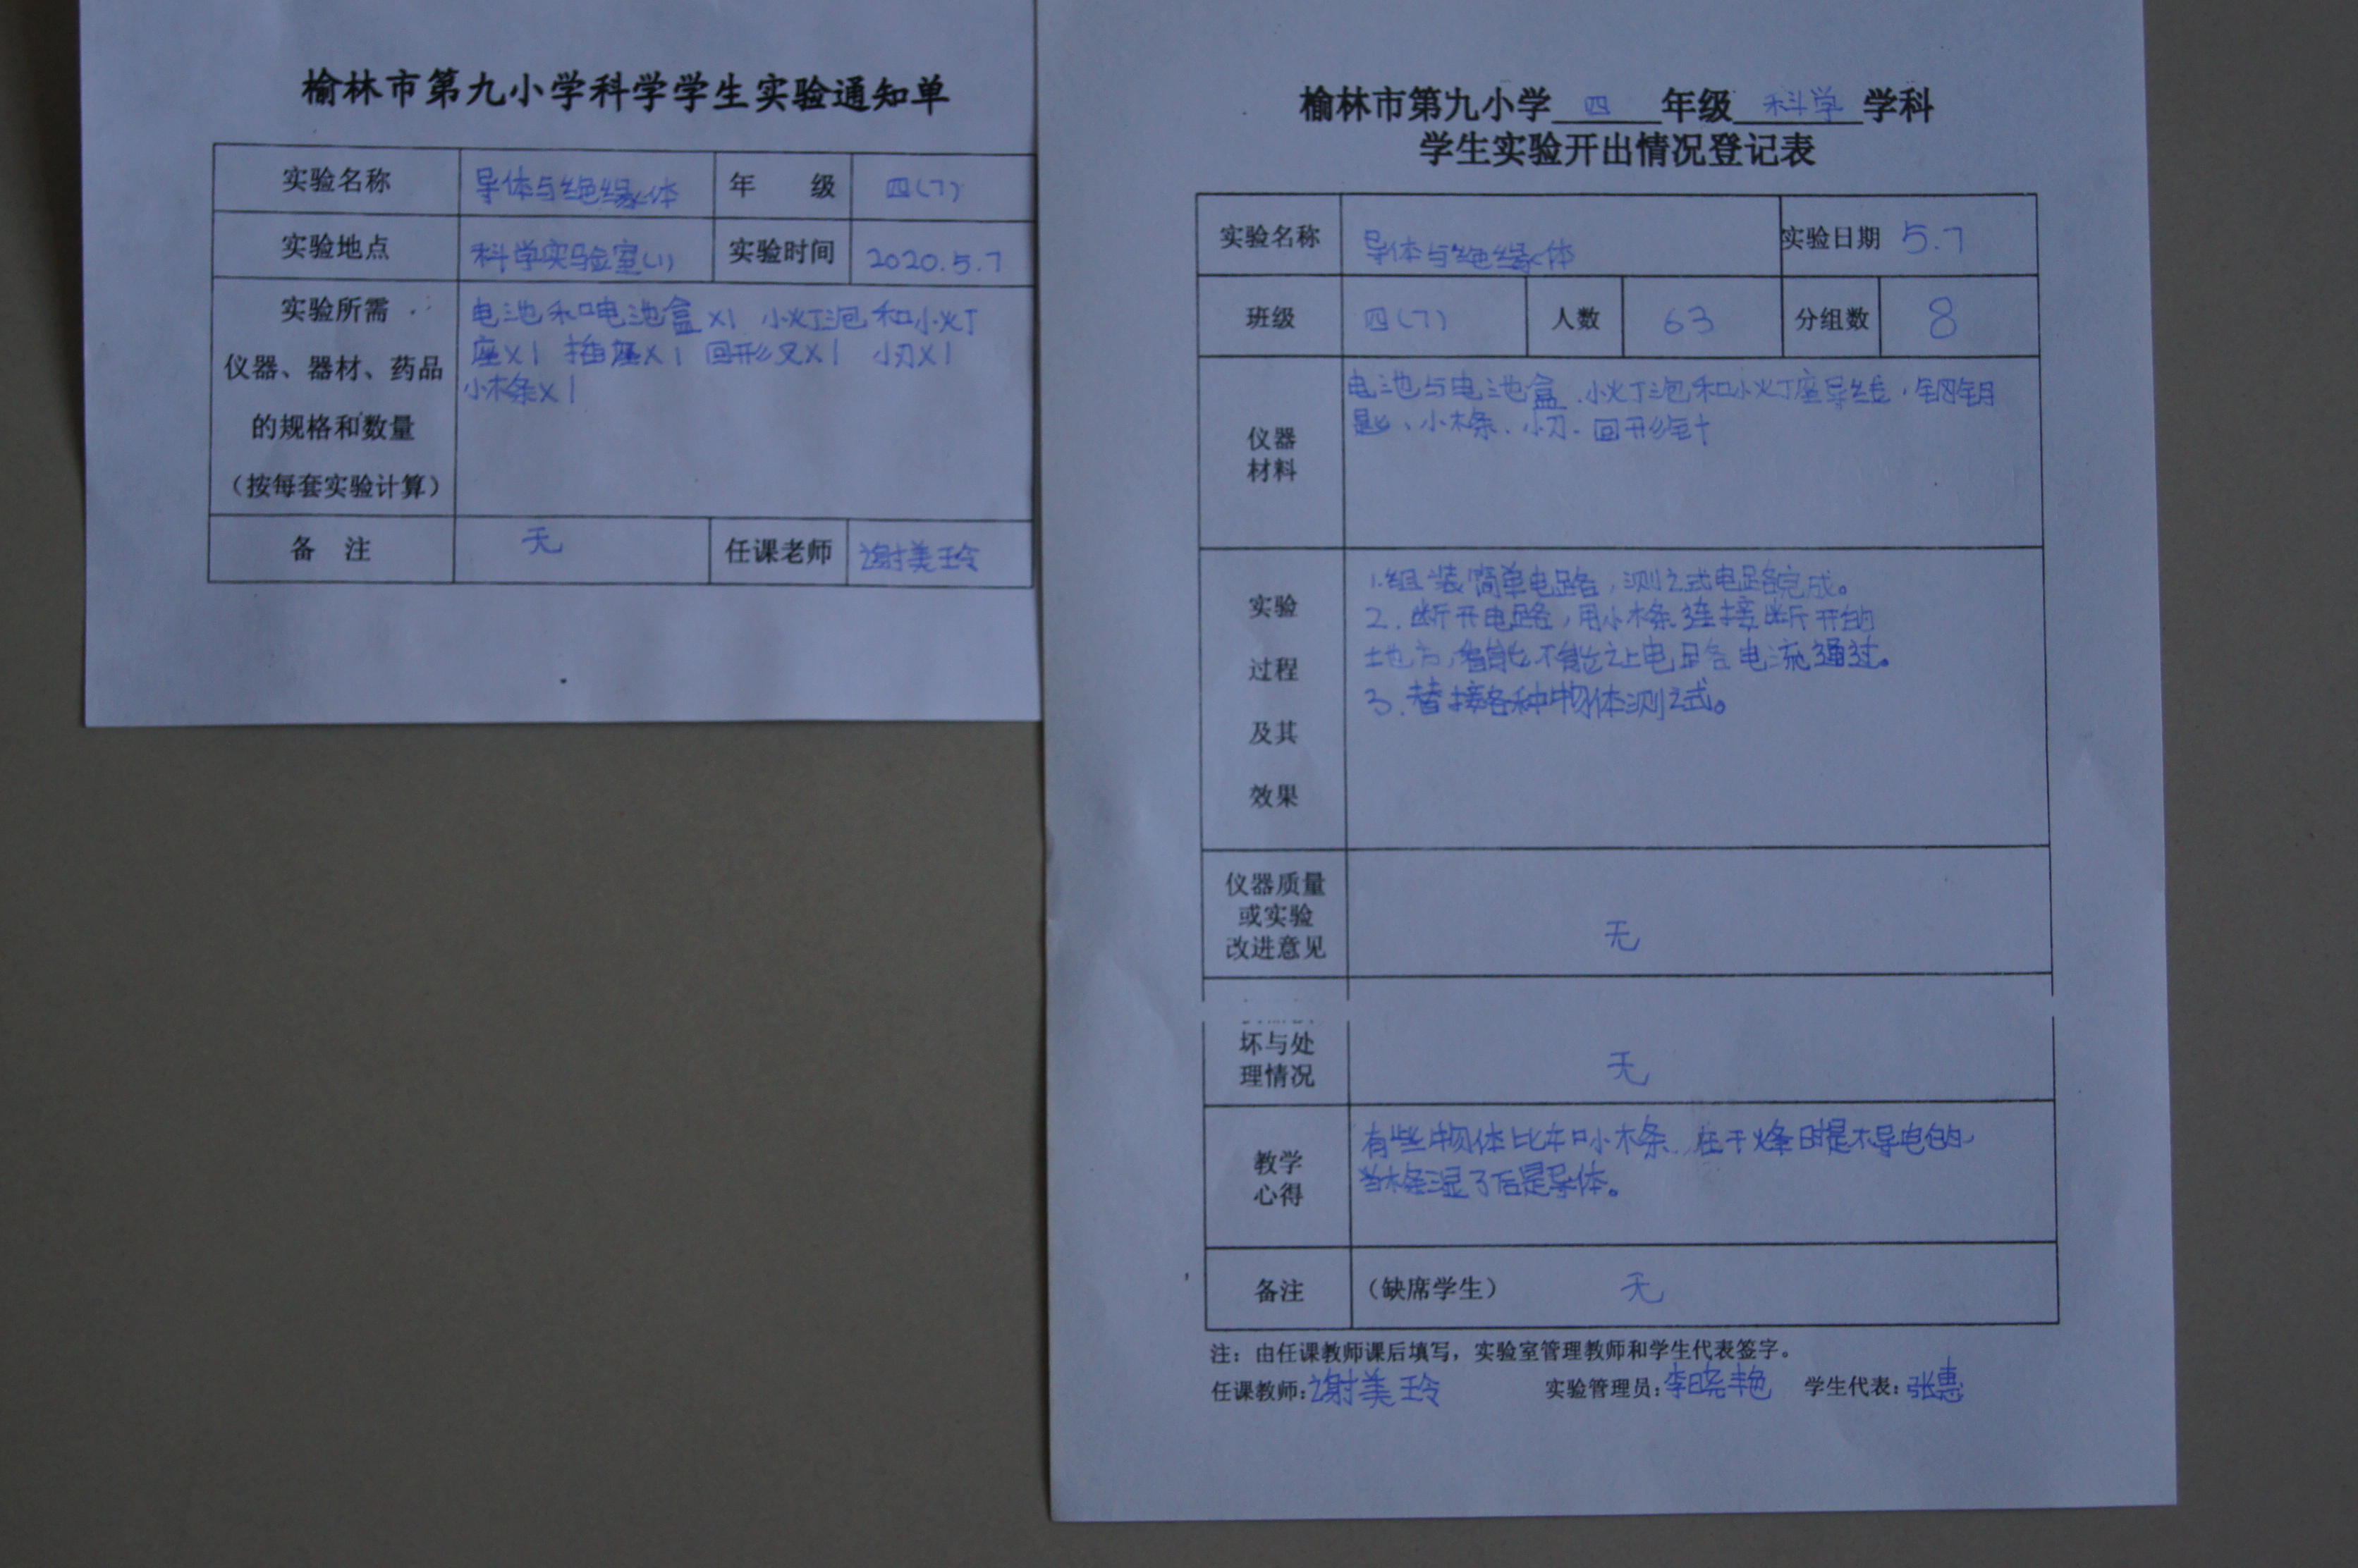 榆林市第九小学科学学生实验通知单
实验名称 导体与绝缘体 年 级 四(7)
实验地点 科学实验室(1) 实验时间 2020.5.7
实验所需
仪器、器材、药品
的规格和数量
(按每套实验计算)
电池和电池盒×1 小灯泡和小灯
座×1 插座×1 回形叉×1 小刀×1
小木条×1
备 注 无 任课老师 谢美玲
榆林市第九小学 四 年级 科学 学科
学生实验开出情况登记表
实验名称 导体与绝缘体 实验日期 5.7
班级 四(7) 人数 63 分组数 8
仪器
材料
电池与电池盒、小灯泡和小灯座导线、钥
匙、小木条、小刀、回形针
实验
过程
及其
效果
1.组装简单电路,测试电路完成。
2.断开电路,用小木条连接断开的
地方,看能不能让电路电流通过。
3.替接各种物体测试。
仪器质量
或实验
改进意见
无
坏与处
理情况
无
教学
心得
有些物体比如小木条,在干燥时是不导电的,
当木条湿了后是导体。
备注 (缺席学生) 无
注:由任课教师课后填写,实验室管理教师和学生代表签字。
任课教师:谢美玲 实验管理员:李晓艳 学生代表:张惠